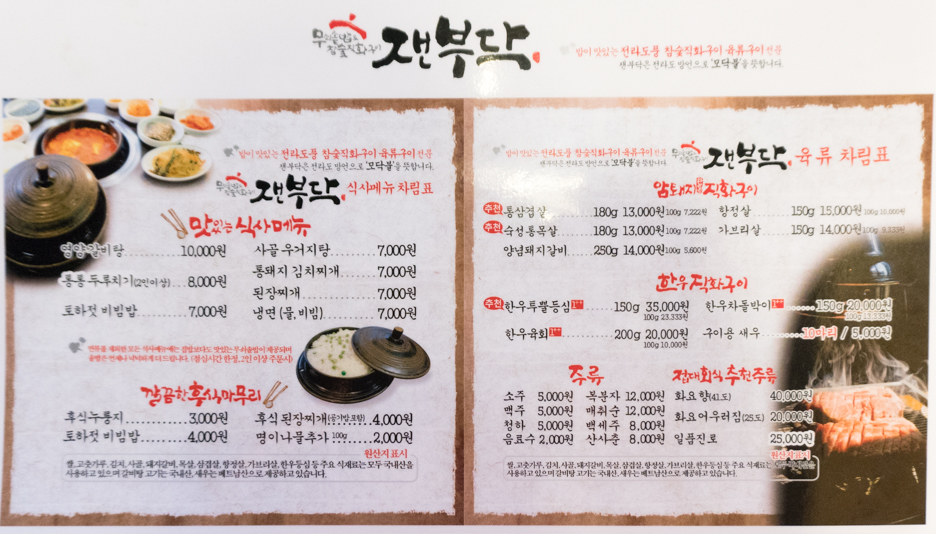 무쇠솥밥&
참숯직화구이
잰부닥
밤이 맛있는 전라도풍 참숯직화구이 육류구이 전문
잰부닥은 전라도 방언으로 '모닥불'을 뜻합니다.
밤이 맛있는 전라도풍 참숯직화구이 육류구이 전문
잰부닥은 전라도 방언으로 '모닥불'을 뜻합니다.
잰부닥 식사메뉴 차림표
맛있는 식사메뉴
영양갈비탕 10,000원
통통 두루치기(2인이상) 8,000원
토하젓 비빔밥 7,000원
사골 우거지탕 7,000원
통돼지 김치찌개 7,000원
된장찌개 7,000원
냉면 (물, 비빔) 7,000원
면류를 제외한 모든 식사메뉴에는 길밥보다도 맛있는 무쇠솥밥이 제공되며
솥밥은 언제나 넉넉하게 더 드립니다. (점심시간 한정, 2인 이상 주문시)
깔끔한 후식마무리
후식누룽지 3,000원
토하젓 비빔밥 4,000원
후식 된장찌개(공기밥 포함) 4,000원
명이나물추가 100g 2,000원
원산지표시
쌀, 고춧가루, 김치, 사골, 돼지갈비, 목살, 삼겹살, 항정살, 가브리살, 한우등심 등 주요 식재료는 모두 국내산을
사용하고 있으며 갈비탕 고기는 국내산, 새우는 베트남산으로 제공하고 있습니다.
밤이 맛있는 전라도풍 참숯직화구이 육류구이 전문
잰부닥은 전라도 방언으로 '모닥불'을 뜻합니다.
잰부닥 육류 차림표
암퇘지 직화구이
추천 통삼겹살 180g 13,000원 100g 7,222원
추천 숙성통목살 180g 13,000원 100g 7,222원
양념돼지갈비 250g 14,000원 100g 5,600원
항정살 150g 15,000원 100g 10,000원
가브리살 150g 14,000원 100g 9,333원
한우직화구이
추천 한우투뿔등심 150g 35,000원
100g 23,333원
한우육회 200g 20,000원
100g 10,000원
한우차돌박이 150g 20,000원
100g 13,333원
구이용 새우 10마리 / 5,000원
주류
소주 5,000원
맥주 5,000원
청하 5,000원
음료수 2,000원
복분자 12,000원
매취순 12,000원
백세주 8,000원
산사춘 8,000원
접대회식 추천주류
화요향(41도) 40,000원
화요어우러짐(25도) 20,000원
일품진로 25,000원
원산지표시
쌀, 고춧가루, 김치, 사골, 돼지갈비, 목살, 삼겹살, 항정살, 가브리살, 한우등심 등 주요 식재료는
사용하고 있으며 갈비탕 고기는 국내산, 새우는 베트남산으로 제공하고 있습니다.